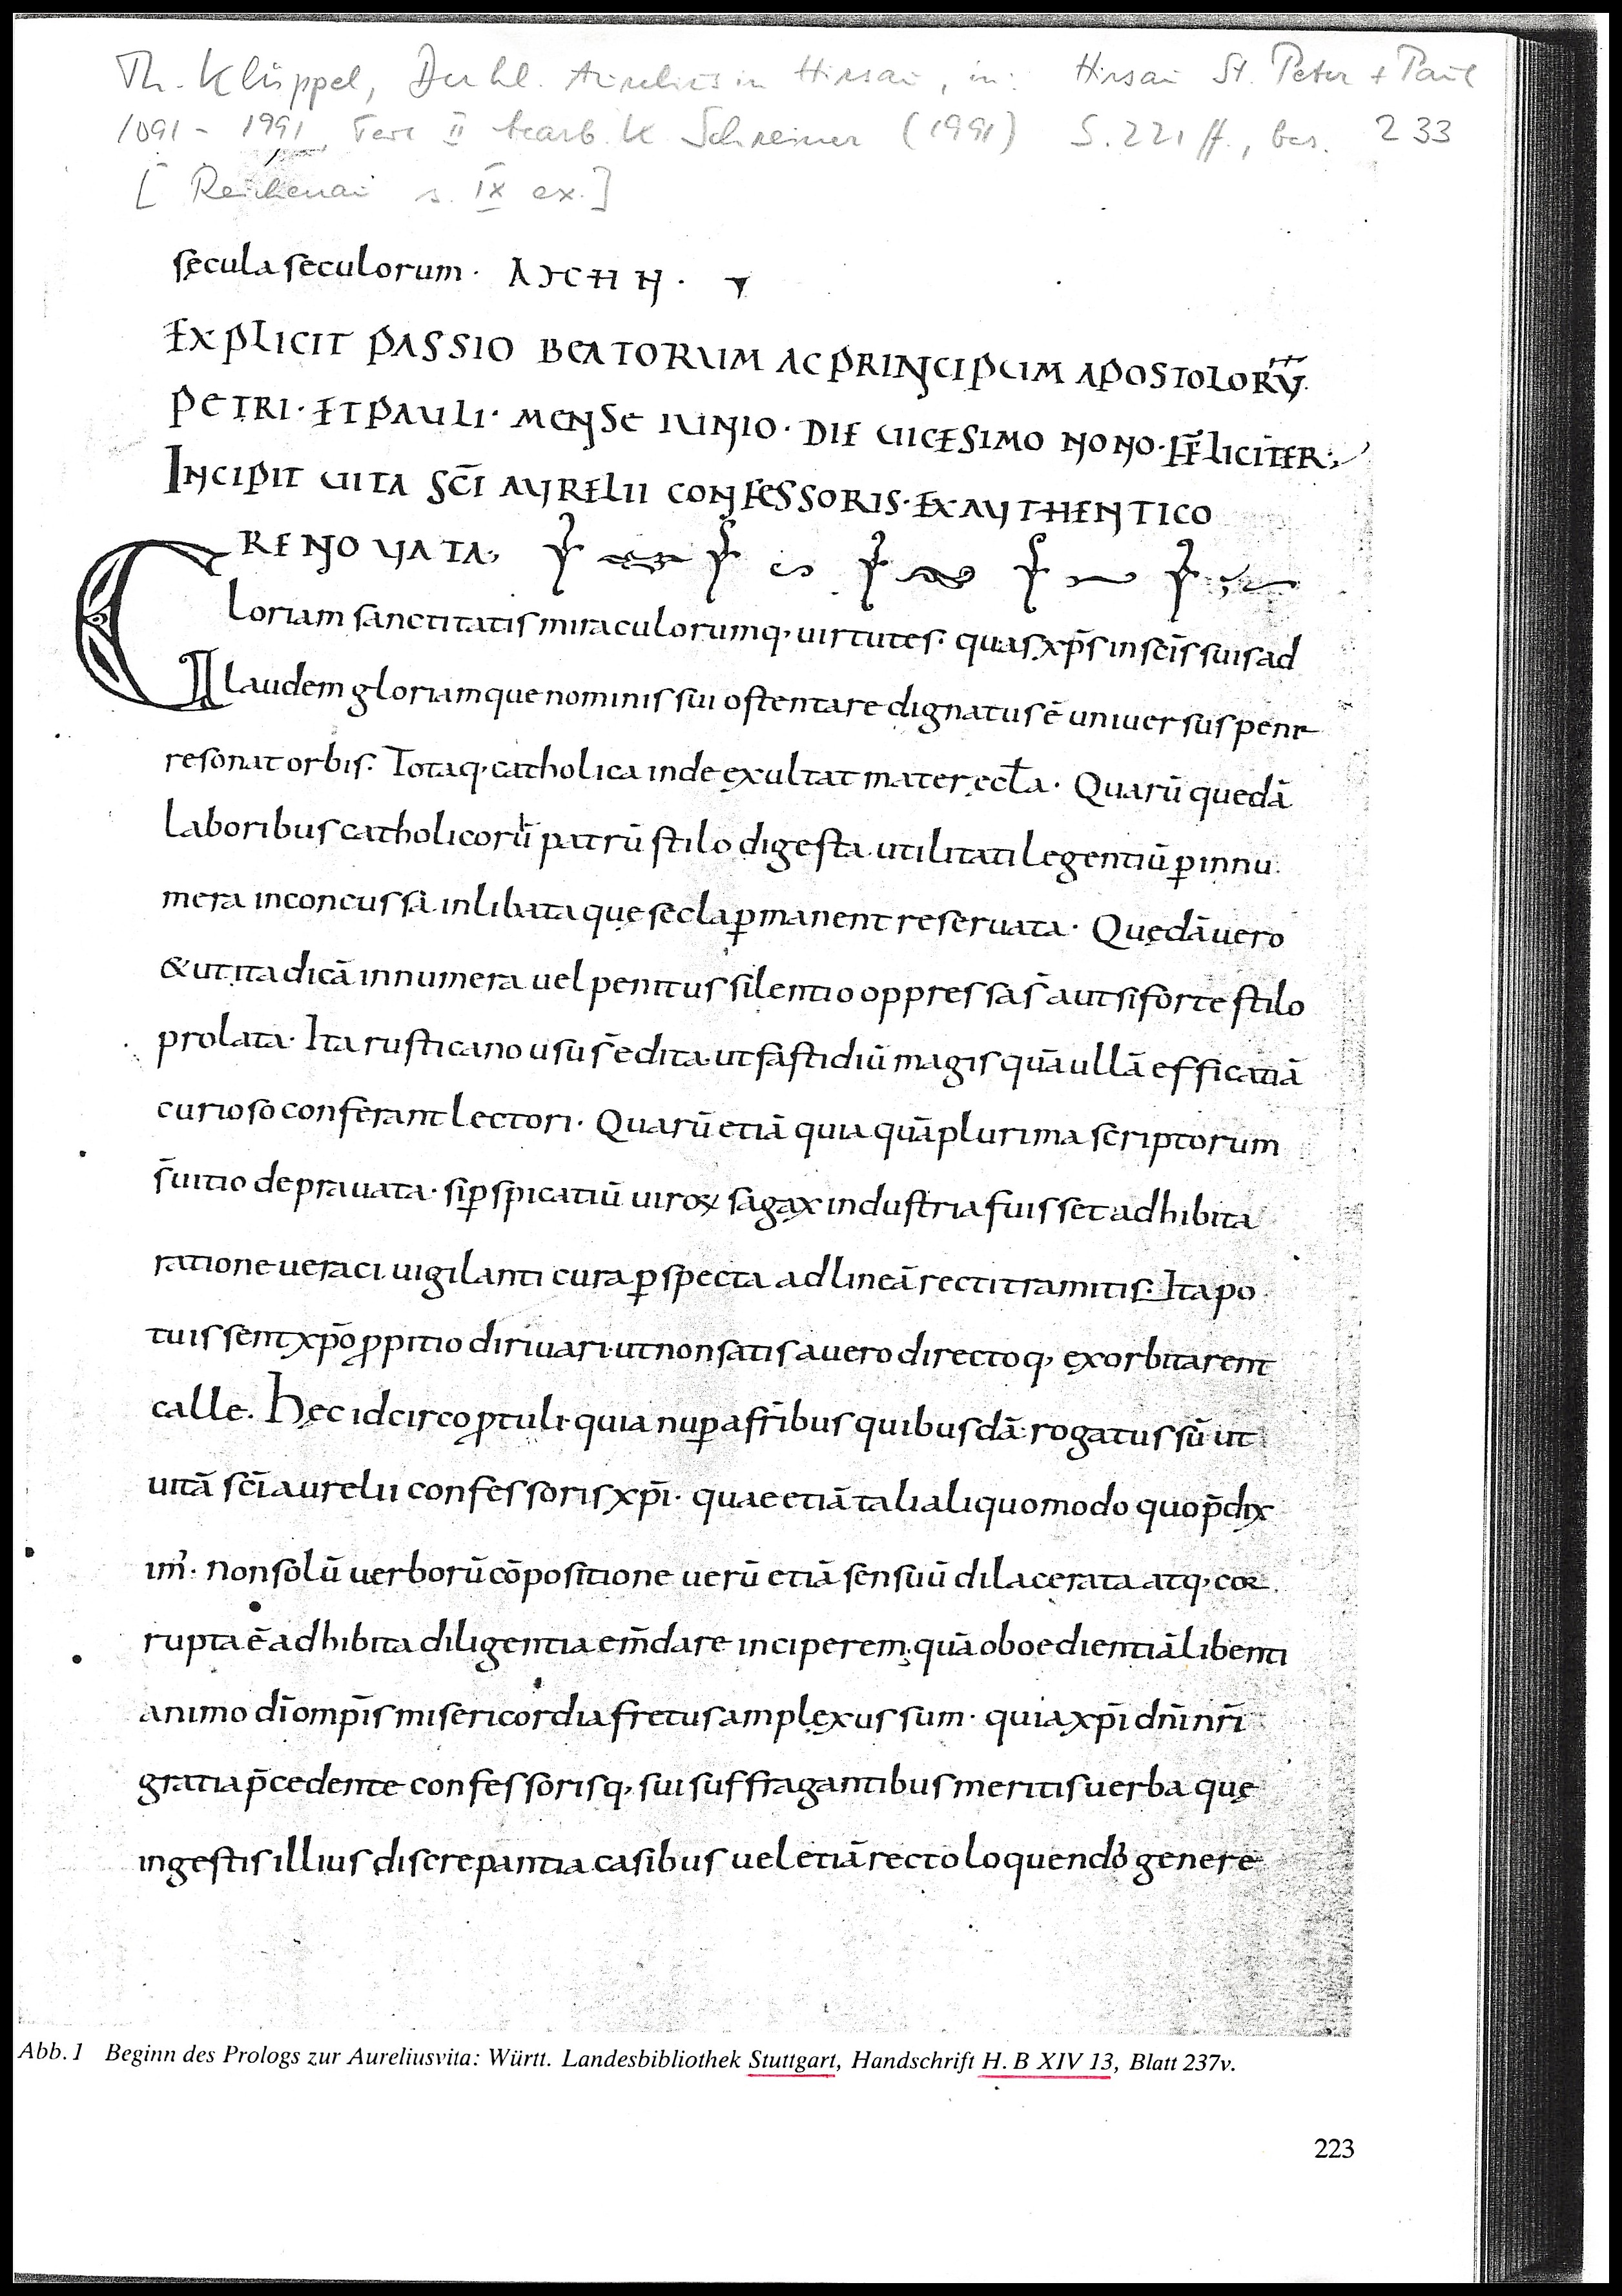 Th. Klüppel, Der hl. Aurelius in Hirsau, in: Hirsau St. Peter + Paul
1091 - 1991, Teil II bearb. K Schreiner (1991) S. 221 ff., bes. 233
[ Reichenau s. IX ex. ]
sęcula seculorum · ΑΜΗΝ ·
EXPLICIT PASSIO BEATORUM AC PRINCIPUM APOSTOLORŪ.
PETRI · ET PAULI · MENSE IUNIO · DIE UICESIMO NONO · FELICITER;
INCIPIT UITA SC̄I AURELII CONFESSORIS · EX AUTHENTICO
RENOUATA;
Gloriam sanctitatis miraculorumq, uirtutes · quas xp̄s in sc̄is suis ad
laudem gloriamque nominis sui ostentare dignatus ē uniuersus pene
resonat orbis. Totaq, catholica inde exultat mater ęccl̄a · Quarū quedā
laboribus catholicorū patrū stilo digesta utilitati legentiū ꝑ innu
mera inconcussa inlibataque secla ꝑmanent reseruata · Quędā uero
& ut ita dicā innumera uel penitus silentio oppressa s̄ aut si forte stilo
prolata · Ita rusticano usu s̄ edita ut fastidiū magis quā ullā efficatiā
curioso conferant lectori · Quarū etiā quia quāplurima scriptorum
s̄ uitio deprauata · si ꝑspicatiū uiroꝝ sagax industria fuisset adhibita
ratione ueraci uigilanti cura ꝑspecta ad lineā recti tramitis. Ita po
tuissent xp̄o ꝓpitio diriuari ut non satis a uero directoq, exorbitarent
calle. Hęc idcirco ꝓtuli quia nuꝑ a fr̄ibus quibusdā rogatus sū ut
uitā sc̄i aurelii confessoris xp̄i · quae etiā tali aliquo modo quo p̄dix
im' · non solū uerborū cōpositione uerū etiā sensuū dilacerata atq, cor
rupta ē adhibita diligentia em̄dare inciperem; quā oboedientiā libenti
animo dī omp̄is misericordia fretus amplexus sum · quia xp̄i dn̄i nr̄i
gratia p̄cedente confessorisq, sui suffragantibus meritis uerba quę
in gestis illius discrepantia casibus uel etiā recto loquendi genere
Abb. 1 Beginn des Prologs zur Aureliusvita: Württ. Landesbibliothek Stuttgart, Handschrift H. B XIV 13, Blatt 237v.
223